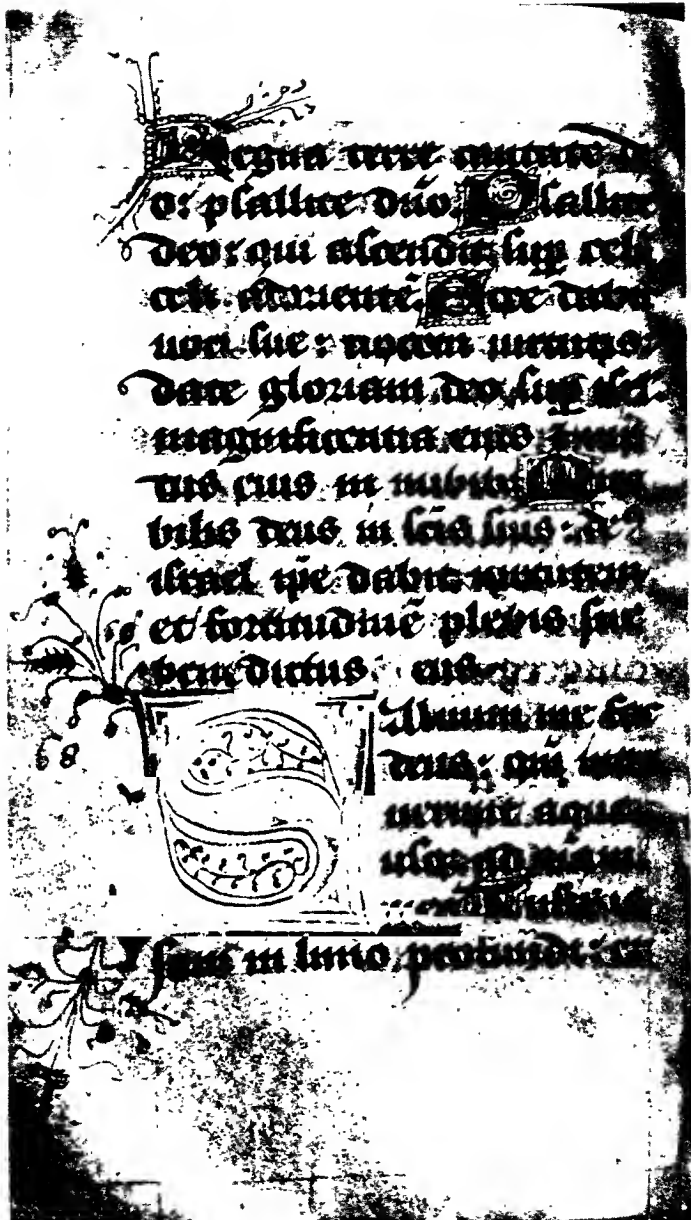 Regna terre cantate de
o: psallite dño. Psallite
deo: qui ascendit sup celū
celi ad orientē. Ecce dabit
voci sue: vocem virtutis:
date gloriam deo sup isrl:
magnificentia eius
tus eius in nubibus. Mira
bilis deus in scīs suis: d
israel ipe dabit virtutem
et fortitudinē plebis sue
benedictus eus
Aluum me fac
deus: qm̄ intra
uerunt aque
usq; ad aīam
Infixus
sum in limo profundi: et